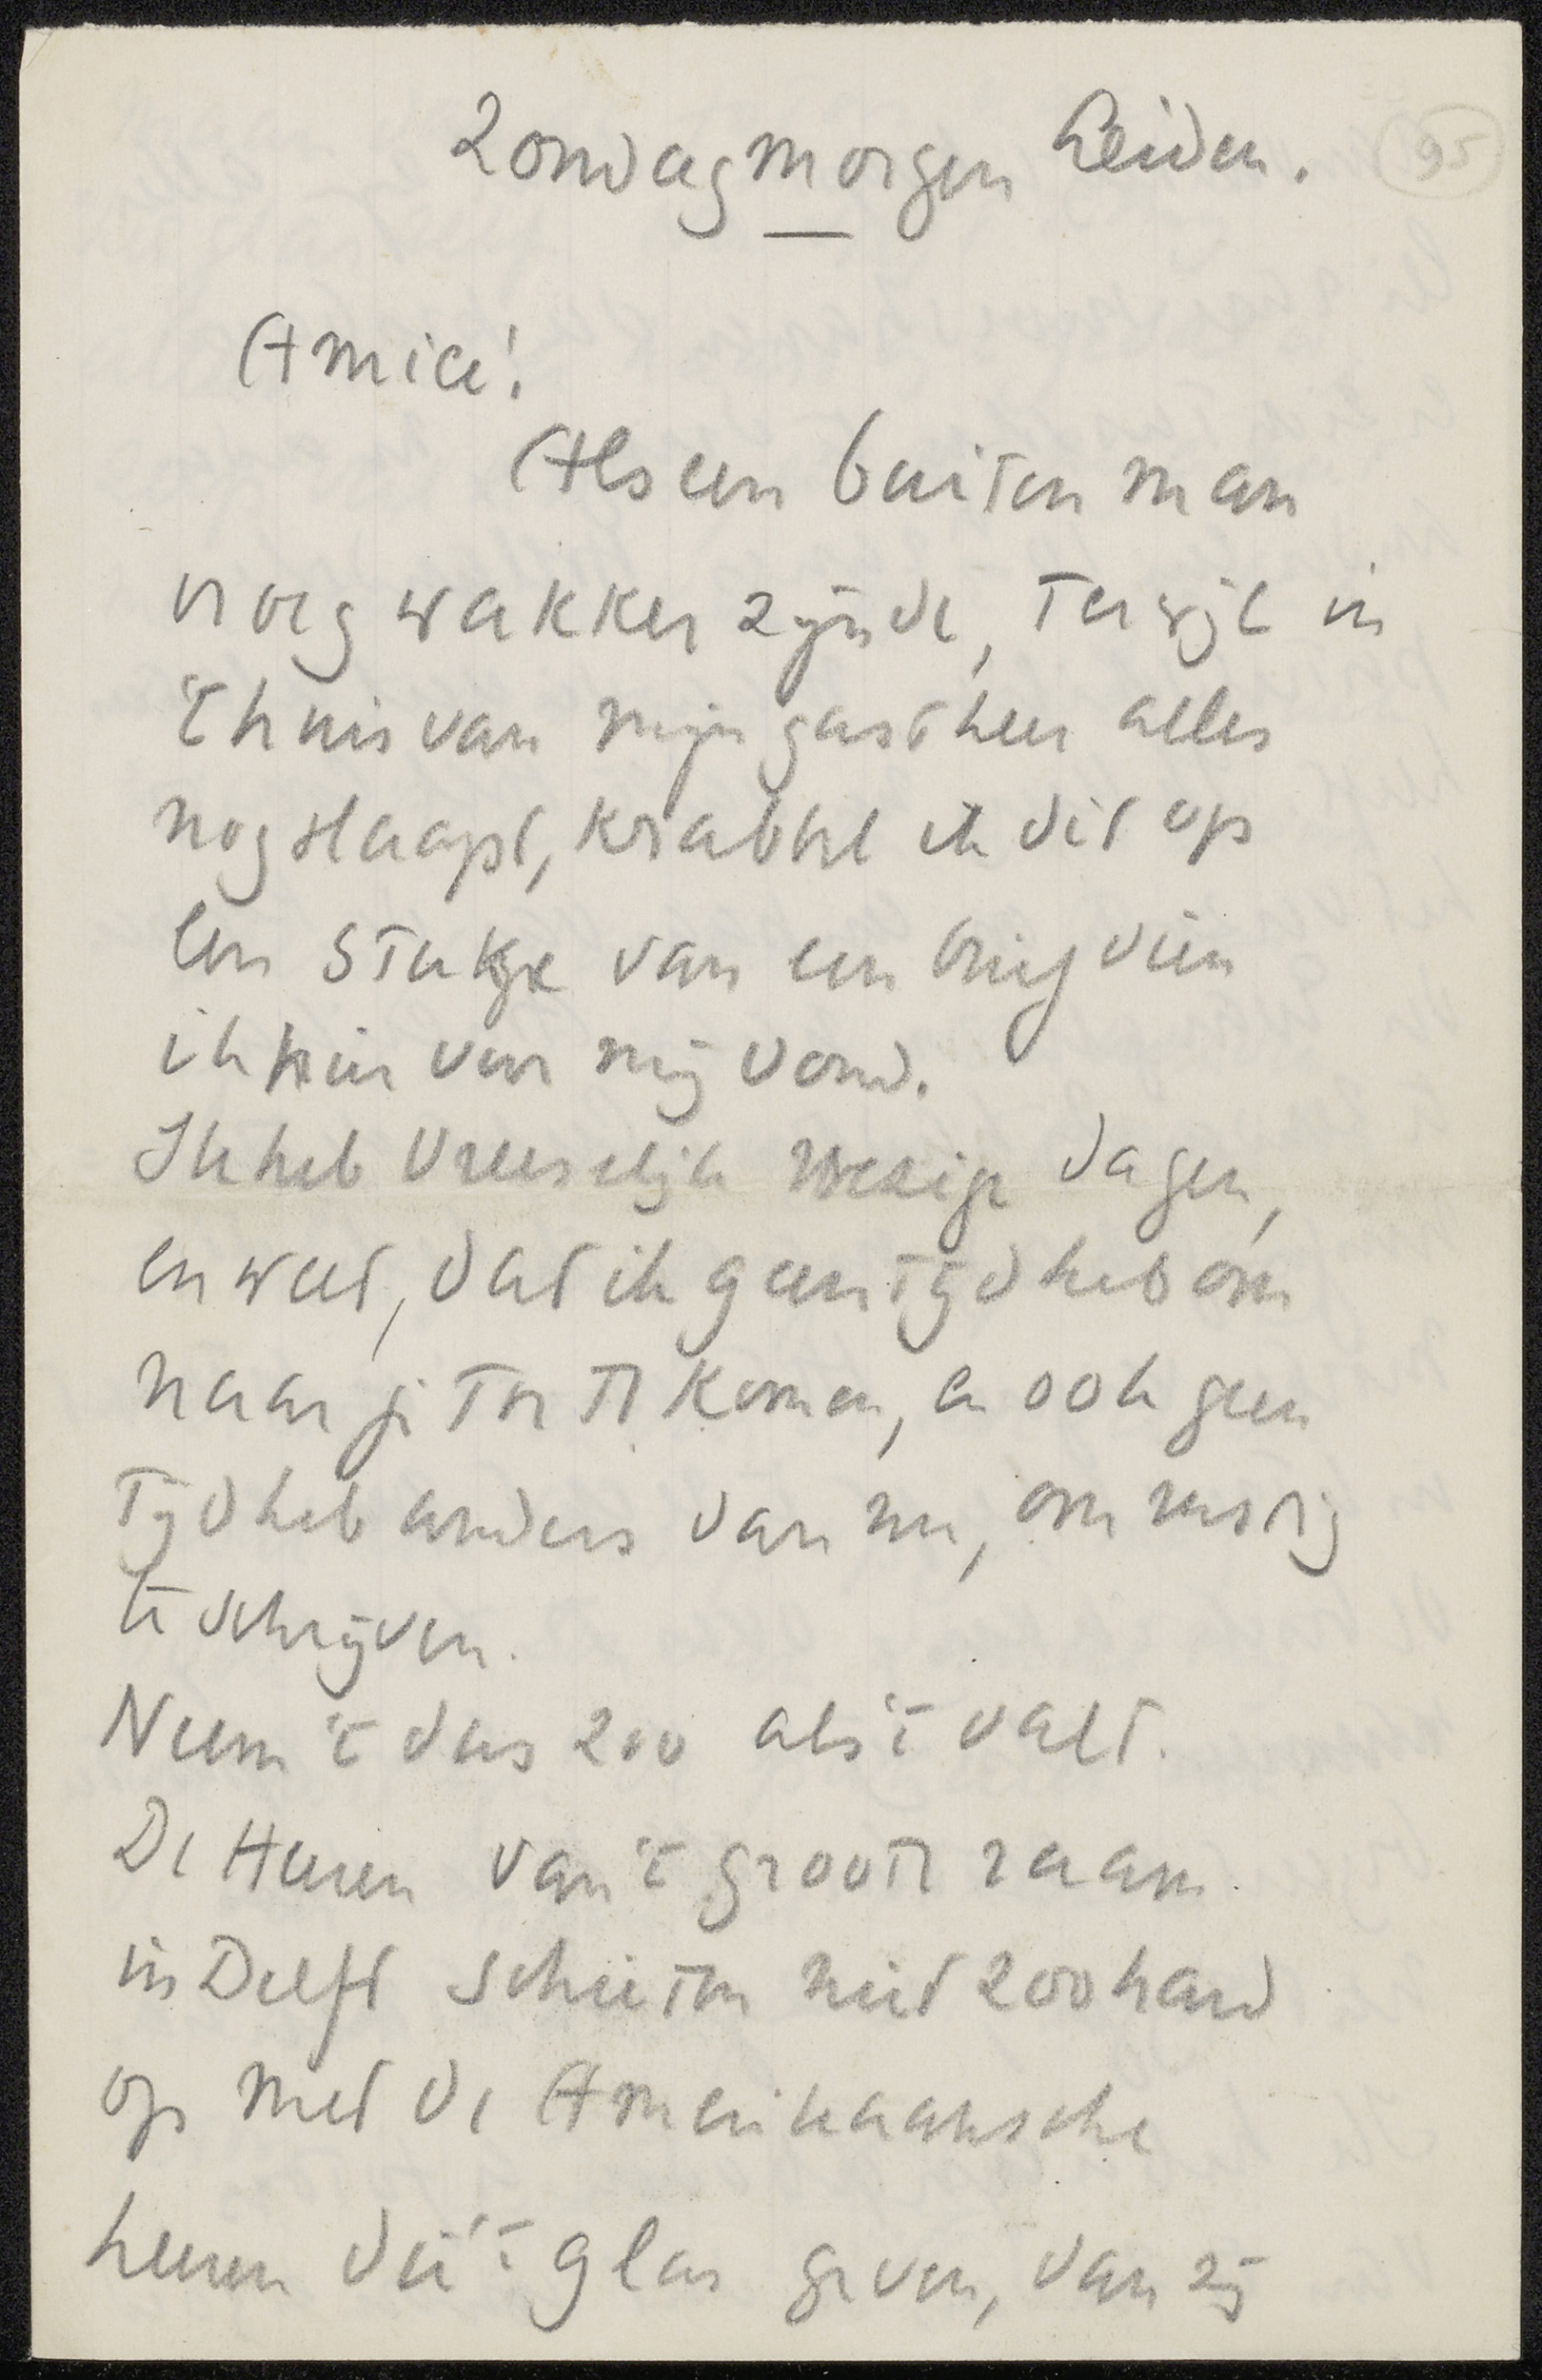 95
Zondagmorgen Leiden.
Amice!
Als een buitenman
vroeg wakker zijnde, terwijl in
't huis van mijn gastheer alles
nog slaapt, krabbel ik dit op
een stukje van een brief dien
ik hier voor mij vond.
Ik heb vreeselijk bezige dagen,
en weet, dat ik geen tijd heb om
naar je toe te komen, en ook geen
tijd heb anders dan nu, om rustig
te schrijven.
Neem 't dus zoo als 't valt.
De Heeren van 't groote raam
in Delft schieten niet zoo hard
op met de Amerikaansche
heeren die 't glas geven, dan zij